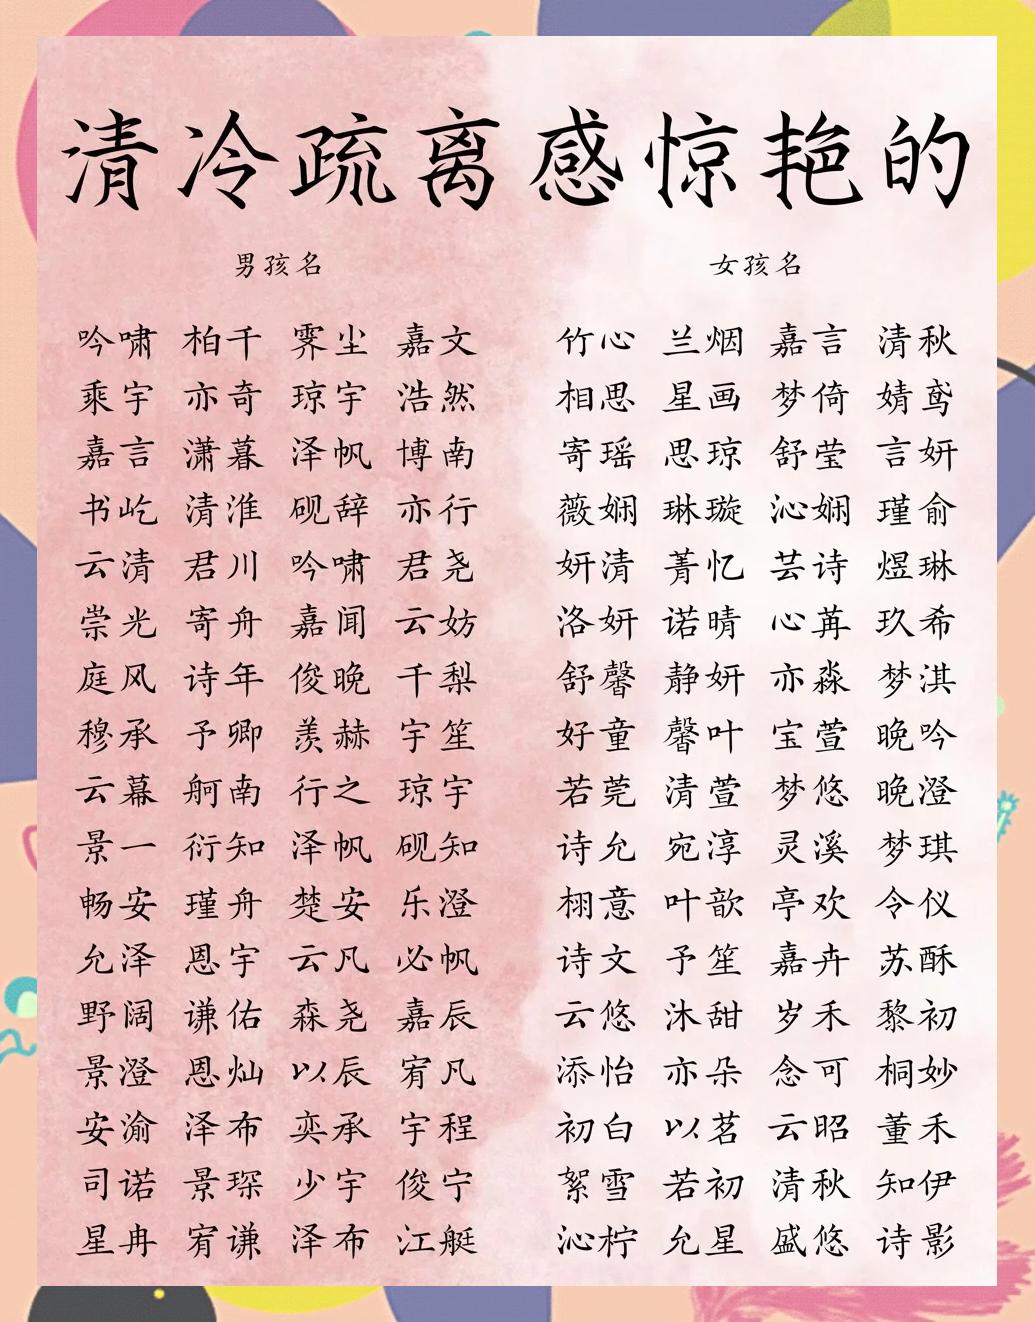 清冷疏离感惊艳的
男孩名 女孩名
吟啸 柏千 霁尘 嘉文 竹心 兰烟 嘉言 清秋
乘宇 亦奇 琼宇 浩然 相思 星画 梦倚 婧鸢
嘉言 潇暮 泽帆 博南 寄瑶 思琼 舒莹 言妍
书屹 清淮 砚辞 亦行 薇娴 琳璇 沁娴 瑾俞
云清 君川 吟啸 君尧 妍清 菁忆 芸诗 煜琳
崇光 寄舟 嘉闻 云妨 洛妍 诺晴 心苒 玖希
庭风 诗年 俊晚 千梨 舒馨 静妍 亦淼 梦淇
穆承 予卿 羡赫 宇笙 好童 馨叶 宝萱 晚吟
云幕 舸南 行之 琼宇 若莞 清萱 梦悠 晚澄
景一 衍知 泽帆 砚知 诗允 宛淳 灵溪 梦琪
畅安 瑾舟 楚安 乐澄 栩意 叶歆 亭欢 令仪
允泽 恩宇 云凡 必帆 诗文 予笙 嘉卉 苏酥
野阔 谦佑 森尧 嘉辰 云悠 沐甜 岁禾 黎初
景澄 恩灿 以辰 宥凡 添怡 亦朵 念可 桐妙
安渝 泽布 奕承 宇程 初白 以茗 云昭 董禾
司诺 景琛 少宇 俊宁 絮雪 若初 清秋 知伊
星冉 宥谦 泽布 江艇 沁柠 允星 盛悠 诗影